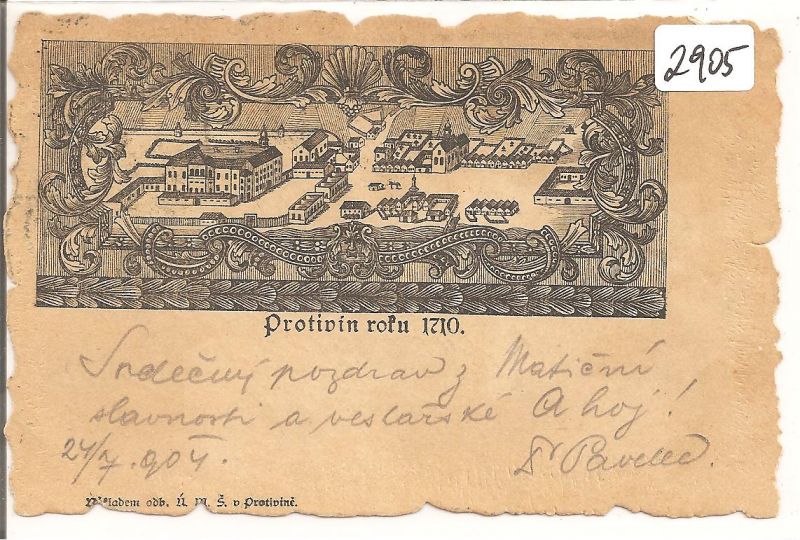 2905
Protivín roku 1710.
Srdečný pozdrav z Matiční
slavnosti a veslařské Ahoj!
24/7. 904. Dr Pavelec.
Nákladem odb. Ú. M. Š. v Protivíně.